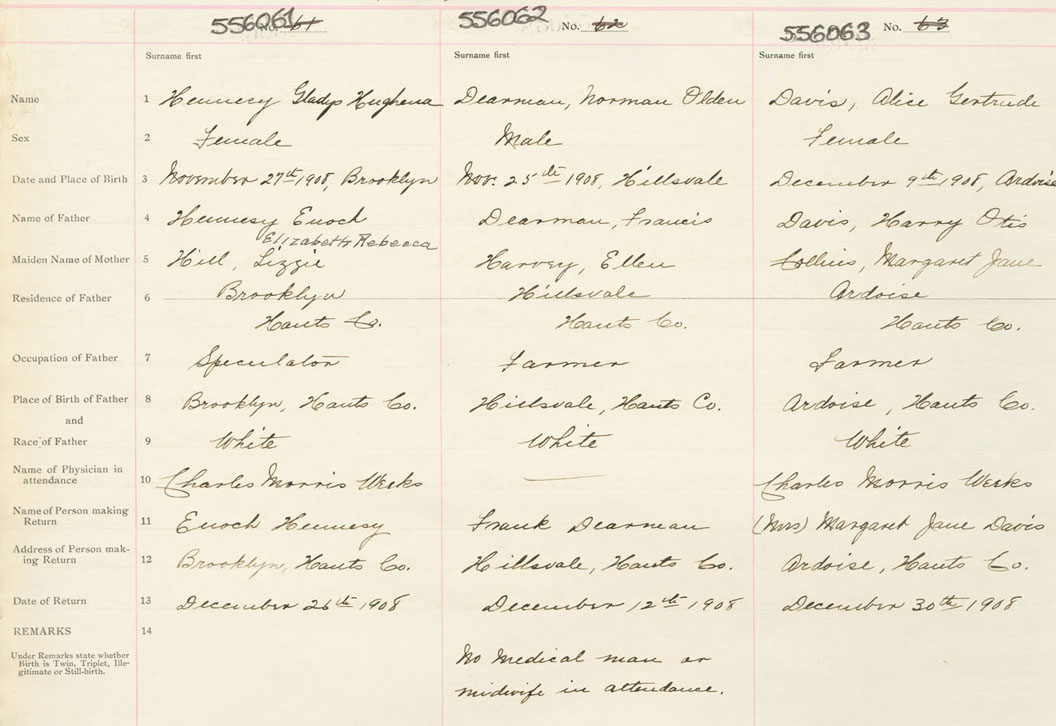 556061 No. 61 556062 No. 62 556063 No. 63
Surname first Surname first Surname first
Name 1 Hennesy Gladys Hughena Dearman, Norman Olden Davis, Alice Gertrude
Sex 2 Female Male Female
Date and Place of Birth 3 November 27th 1908, Brooklyn Nov. 25th 1908, Hillsvale December 9th 1908, Ardoise
Name of Father 4 Hennesy Enoch Dearman, Francis Davis, Harry Otis
Elizabeth Rebecca
Maiden Name of Mother 5 Hill, Lizzie Harvey, Ellen Collins, Margaret Jane
Residence of Father 6 Brooklyn Hillsvale Ardoise
Hants Co. Hants Co. Hants Co.
Occupation of Father 7 Speculator Farmer Farmer
Place of Birth of Father 8 Brooklyn, Hants Co. Hillsvale, Hants Co. Ardoise, Hants Co.
and
Race of Father 9 White White White
Name of Physician in
attendance 10 Charles Morris Weeks — Charles Morris Weeks
Name of Person making
Return 11 Enoch Hennesy Frank Dearman (Mrs) Margaret Jane Davis
Address of Person mak-
ing Return 12 Brooklyn, Hants Co. Hillsvale, Hants Co. Ardoise, Hants Co.
Date of Return 13 December 26th 1908 December 12th 1908 December 30th 1908
REMARKS 14
Under Remarks state whether
Birth is Twin, Triplet, Ille-
gitimate or Still-birth.
No medical man or
midwife in attendance.